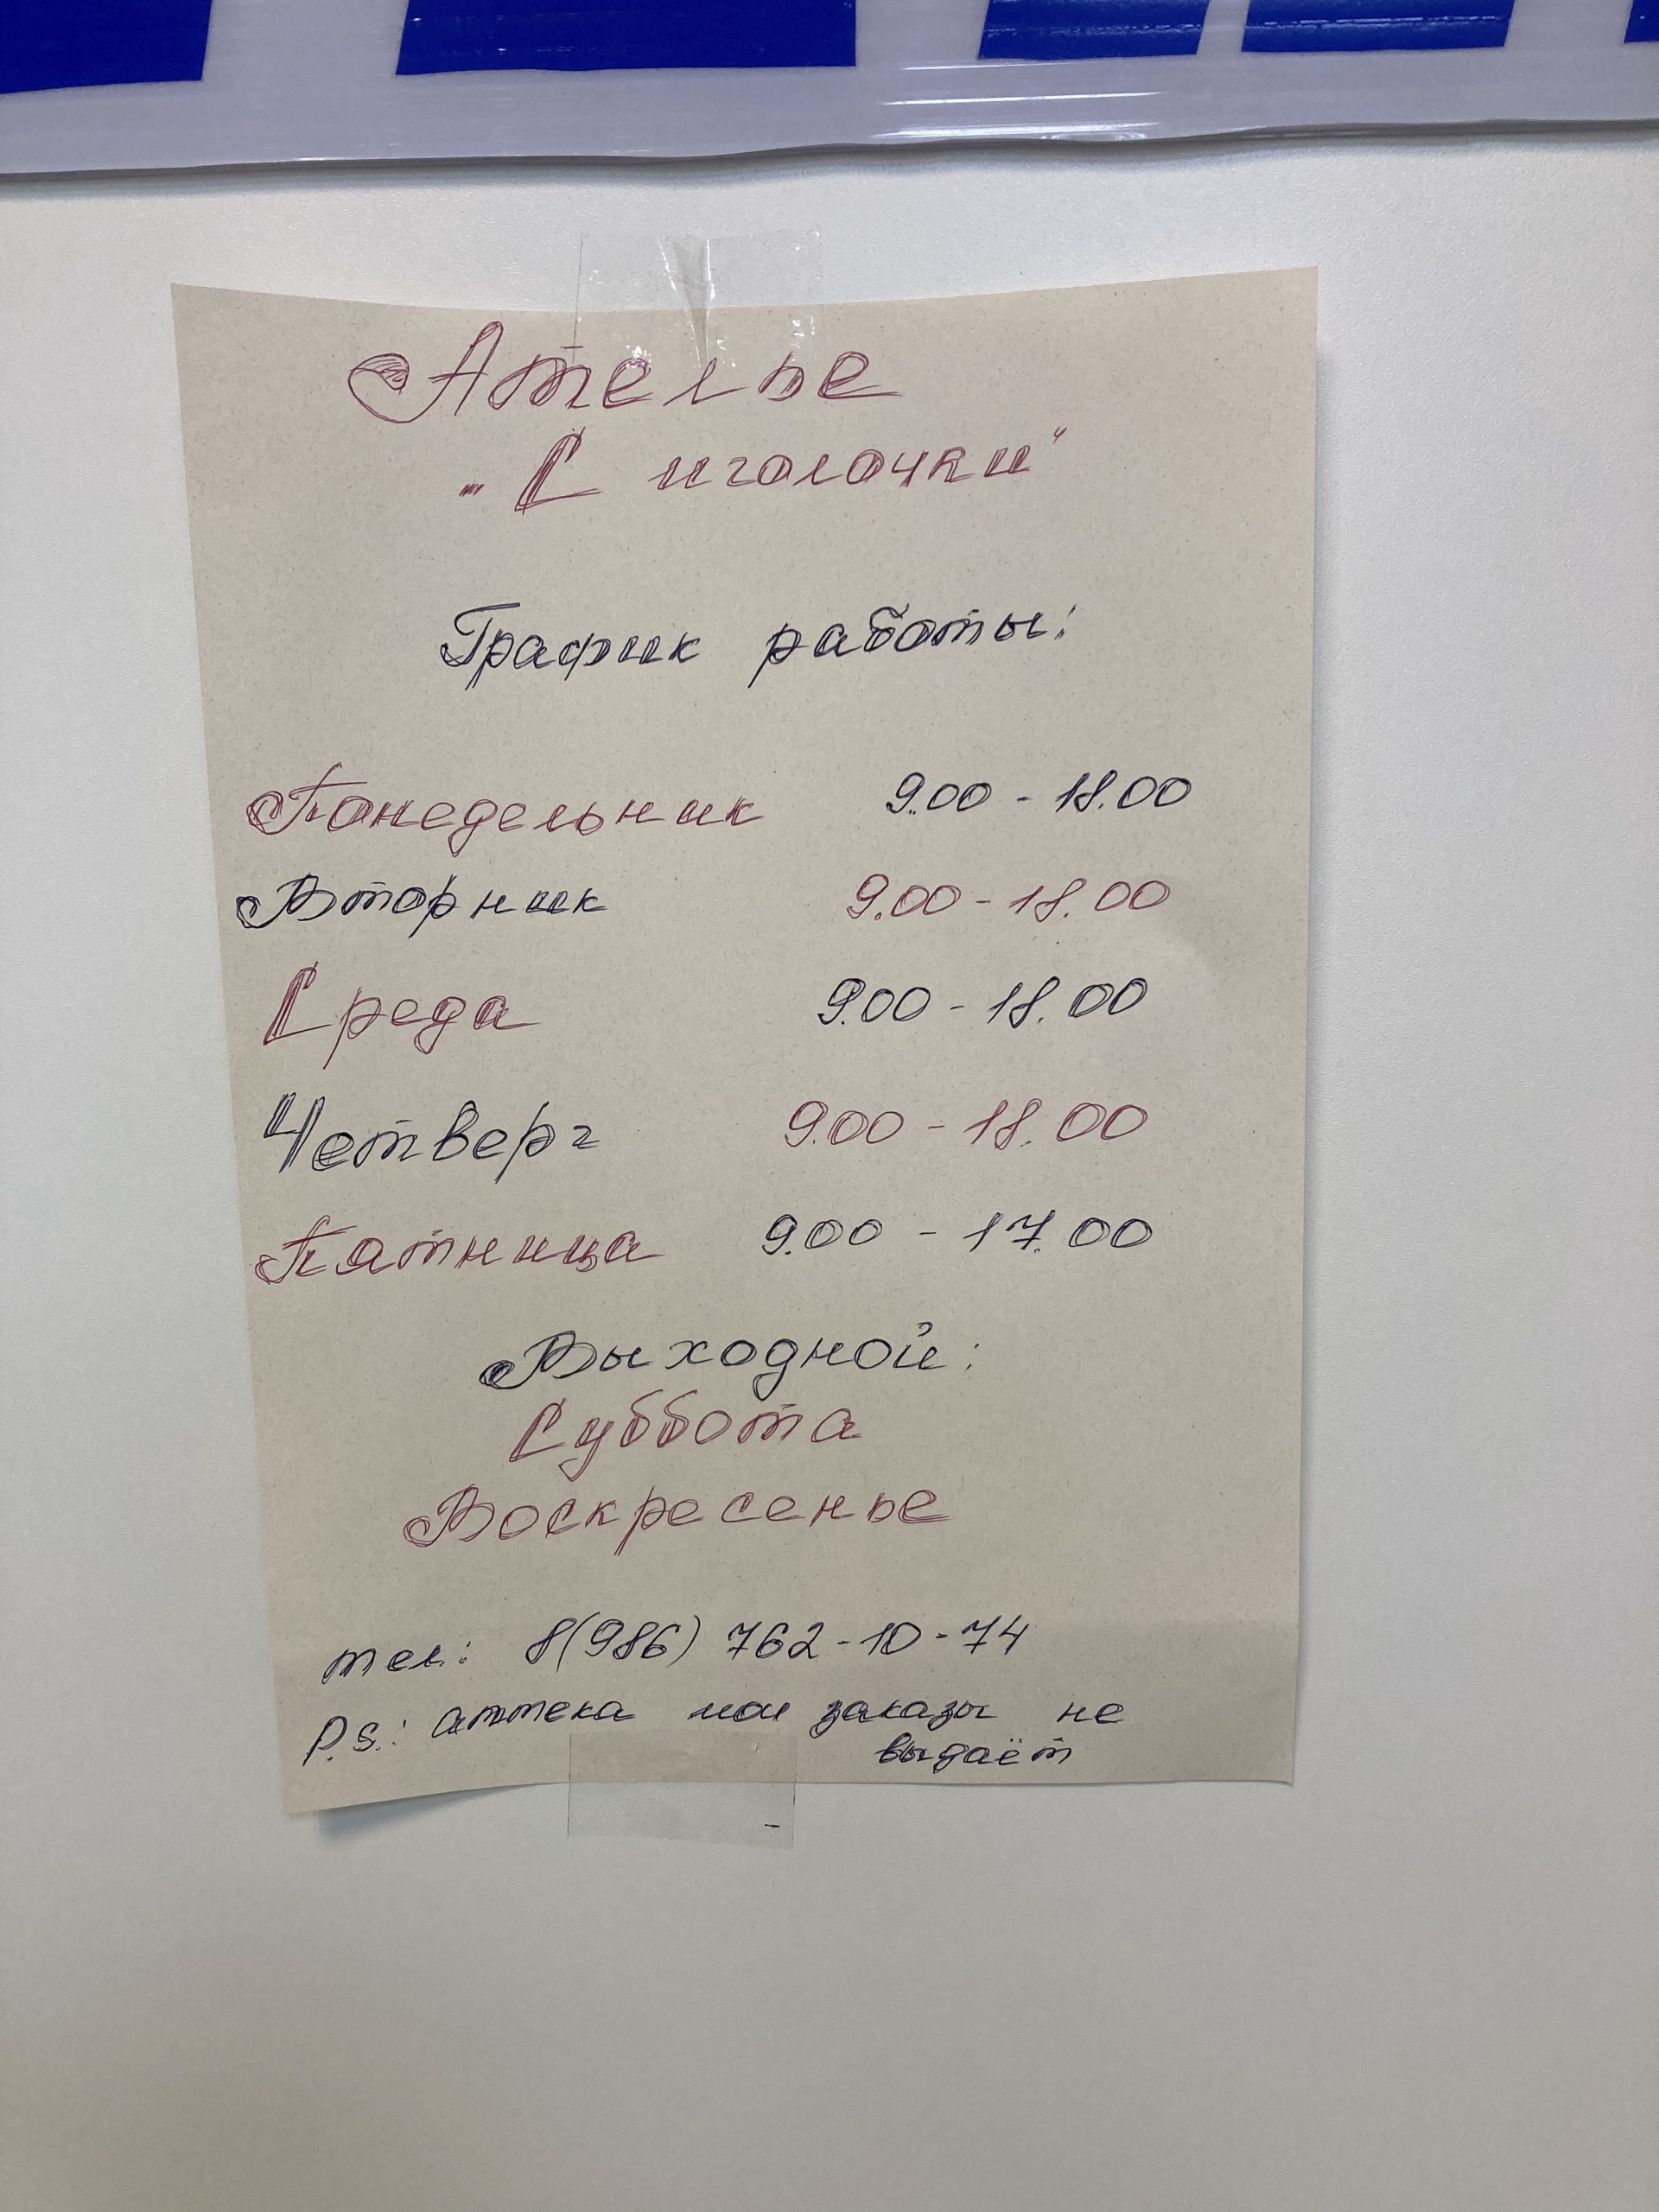 Ателье
„С иголочки"
График работы:
Понедельник 9.00 - 18.00
Вторник 9.00 - 18.00
Среда 9.00 - 18.00
Четверг 9.00 - 18.00
Пятница 9.00 - 17.00
Выходной:
Суббота
Воскресенье
тел.: 8(986) 762-10-74
P.S.: аптека мои заказы не
выдаёт